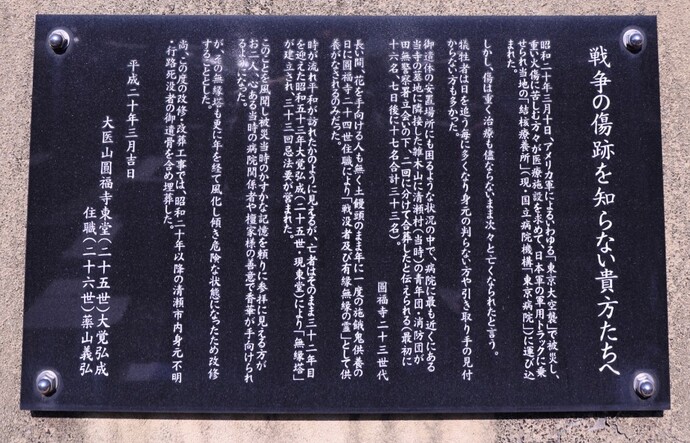 戦争の傷跡を知らない貴方たちへ
昭和二十年三月十日、アメリカ軍によるいわゆる「東京大空襲」で被災し、
重い火傷に苦しむ方々が医療施設を求めて、日本軍の軍用トラックに乗
せられ当地の「結核療養所」（現・国立病院機構「東京病院」）に運び込
まれた。
しかし、傷は重く治療も儘ならないまま次々と亡くなられたと言う。
犠牲者は日を追う毎に多くなり身元の判らない方や引き取り手の見付
からない方も多かった。
御遺体の安置場所にも困るような状況の中で、病院に最も近くにある
当寺の墓地に隣接した雑木山に清瀬村（当時）の青年団・消防団が
田無警察署立会いの下、二回に分けて合葬したと伝えられる（最初に
十六名、七日後に十七名合計三十三名）。
圓福寺二十三世代
長い間、花を手向ける人も無く土饅頭のまま年に一度の施餓鬼供養の
日に圓福寺二十四世住職により「戦没者及び有縁無縁の霊」として供
養がなされるのみだった。
時が流れ平和が訪れたかのように見えるが、亡者はそのまま三十二年目
を迎えた昭和五十三年大覚弘成（二十五世・現東堂）により「無縁塔」
が建立され、三十三回忌法要が営まれた。
このことを風聞し被災当時のかすかな記憶を頼りに参拝に見える方が
お一人、心ある当時の病院関係者や檀家様の善意で香華が手向けられ
るようになった。
が、その無縁塔も更に年を経て風化し傾き危険な状態になったため改修
することとした。
尚、この度の改修・改葬工事では、昭和二十年以降の清瀬市内身元不明
・行路死没者の御遺骨を含め埋葬した。
平成二十年三月吉日
大医山圓福寺東堂（二十五世）大覚弘成
住職（二十六世）薬山義弘